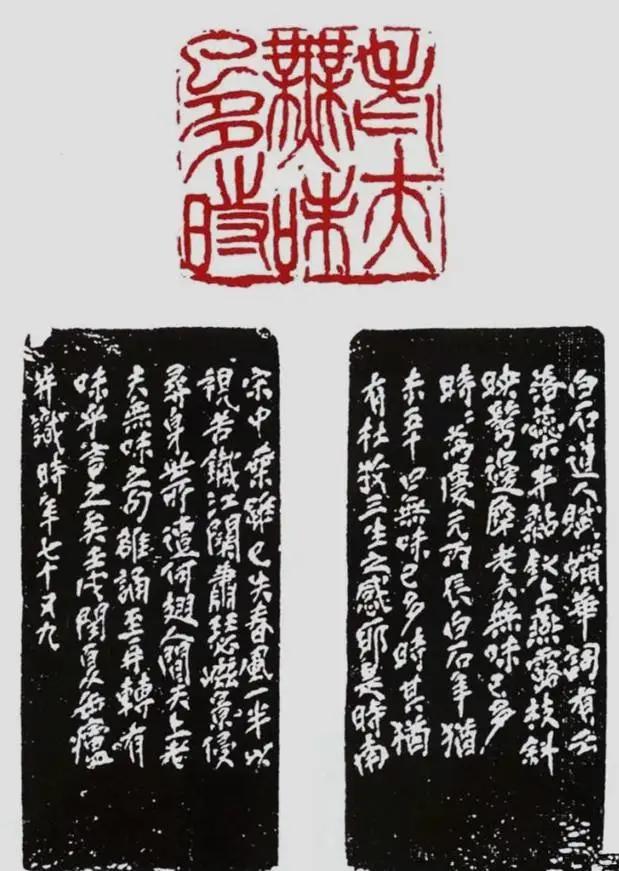 老夫
無味
已多時
白石道人賦蠟華詞有云
落蘂半黏釵上燕露枝斜
映鬢邊犀老夫無味已多
時時為慶元丙辰白石年猶
未五十曰無味已多時其猶
有杜牧三生之感耶是時南
宋中雖已失春風一半以
視苦鐵江關肅瑟景侵
尋身世所遭何翅人間天上老
夫無味之句雒誦至再轉有
味乎言之矣壬戌閏夏缶廬
并識時年七十又九